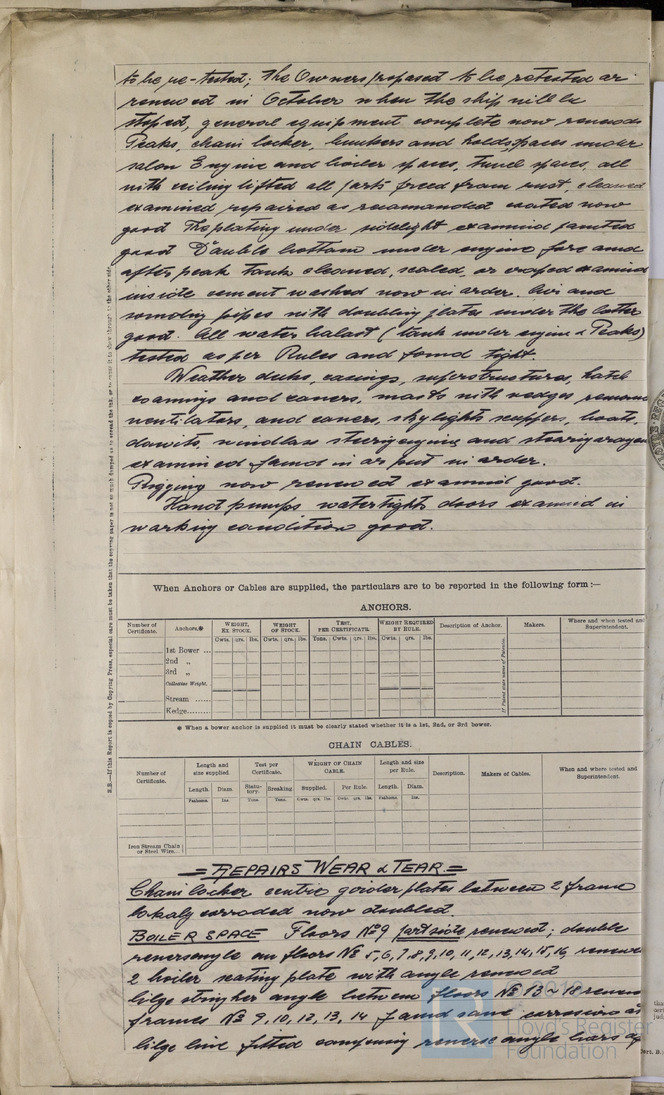 to be re-tested; the Owners proposed to be retested or
renewed in October when the ship will be
stoped, general equipment complete now renewed
Peaks, chain locker, bunkers and holdspaces under
salon Engine and boiler spaces, tunnel spaces, all
with ceiling lifted all parts freed from rust, cleaned
examined repaired as recomanded coated now
good The plating under sidelight examined painted
good Double bottom under engine fore and
after peak tank cleaned, scaled, or craped examined
inside cement washed now in order. Air and
sounding pipes with doubling plates under the latter
good. All water balast (tank under engine & Peaks)
tested as per Rules and found tight.
Weather decks, casings, superstructures, hatch
coamings and covers, masts with wedges remove
ventilators, and covers, skylights scuppers, boats,
davits windlass steering engine and steering
examined found in or put in order.
Rigging now renewed examined good.
Hand pumps watertight doors examined in
working condition good.
N.B.—If this Report is copied by Copying Press, especial care must be taken that the copying paper is not so much damped as to spread the ink, or to cause it to show through to the other side.
When Anchors or Cables are supplied, the particulars are to be reported in the following form:—
ANCHORS.
Number of Certificate. Anchors.* WEIGHT, EX STOCK. WEIGHT OF STOCK. TEST, PER CERTIFICATE. WEIGHT REQUIRED BY RULE. Description of Anchor. If Patent state name of Patentee. Makers. Where and when tested and Superintendent.
Cwts. qrs. lbs. Cwts. qrs. lbs. Tons. Cwts. qrs. lbs. Cwts. qrs. lbs.
1st Bower ...
2nd „
3rd „
Collective Weight.
Stream ......
Kedge.........
* When a bower anchor is supplied it must be clearly stated whether it is a 1st, 2nd, or 3rd bower.
CHAIN CABLES.
Number of Certificate. Length and size supplied. Test per Certificate. WEIGHT OF CHAIN CABLE. Length and size per Rule. Description. Makers of Cables. When and where tested and Superintendent.
Length. Diam. Statutory. Breaking. Supplied. Per Rule. Length. Diam.
Fathoms. Ins. Tons. Tons. Cwts. qrs. lbs. Cwts. qrs. lbs. Fathoms. Ins.
Iron Stream Chain or Steel Wire...
= REPAIRS WEAR & TEAR. =
Chain locker centre goirder plates between 2 frame
lokaly corroded now doubled.
BOILER SPACE Floors No 9 port side renewed; double
reversangle on floors No 5, 6, 7, 8, 9, 10, 11, 12, 13, 14, 15, 16, renewe
2 boiler seating plate with angle renewed
bilge stringher angle between floors No 13 ~ 18 renew
frames No 9, 10, 12, 13, 14 found some corrosion at
bilge line fitted compining reverse angle bars of
Lloyd's Register
Foundation